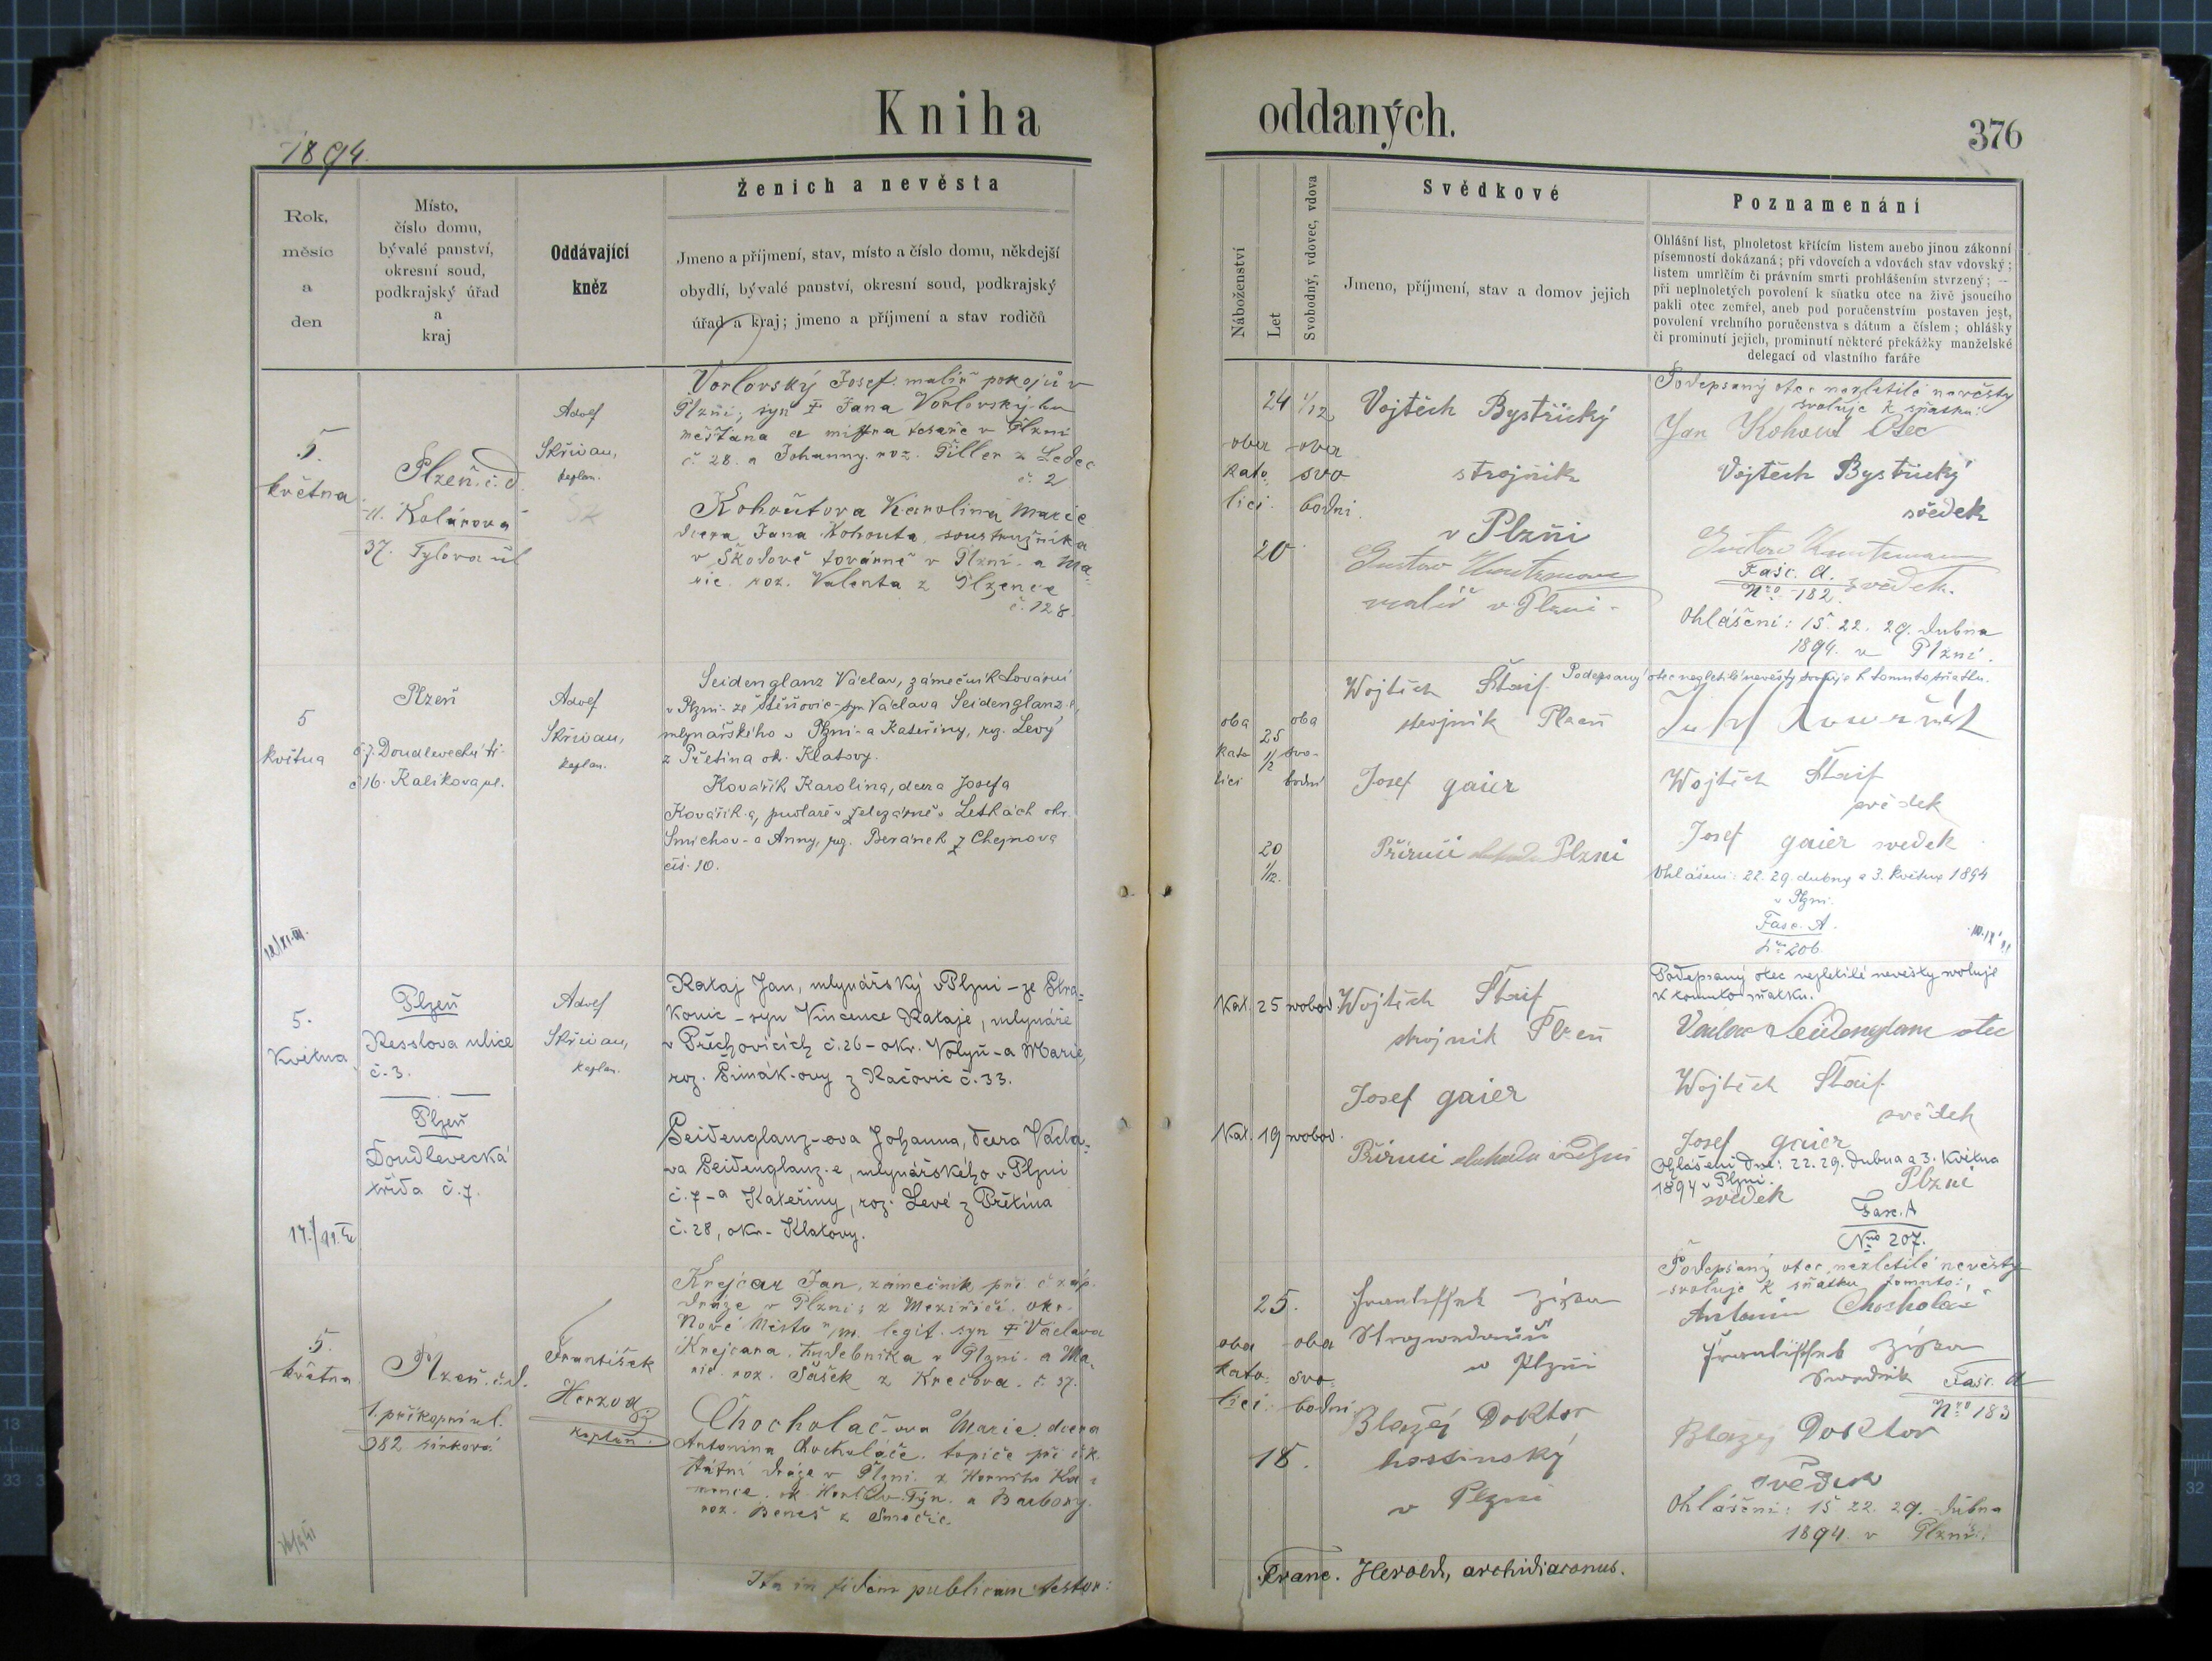 Kniha
oddaných.
376
1894.
Rok,
měsíc
a
den
Místo,
číslo domu,
bývalé panství,
okresní soud,
podkrajský úřad
a
kraj
Oddávající
kněz
Ženich a nevěsta
Jmeno a příjmení, stav, místo a číslo domu, někdejší
obydlí, bývalé panství, okresní soud, podkrajský
úřad a kraj; jmeno a příjmení a stav rodičů
Náboženství
Let
Svobodný, vdovec, vdova
Svědkové
Jmeno, příjmení, stav a domov jejich
Poznamenání
Ohlášní list, plnoletost křtícím listem anebo jinou zákonní
písemností dokázaná; při vdovcích a vdovách stav vdovský;
listem umrlčím či právním smrti prohlášením stvrzený; —
při neplnoletých povolení k sňatku otce na živě jsoucího
pakli otec zemřel, aneb pod poručenstvím postaven jest,
povolení vrchního poručenstva s dátum a číslem; ohlášky
či prominutí jejich, prominutí některé překážky manželské
delegací od vlastního faráře
5.
května
Plzeň. č. d.
11. Kolárova
37. Tylova ul
Adolf
Skřivan,
kaplan.
Vorlovský Josef. malíř pokojů v
Plzni, syn † Jana Vorlovský-ho
měšťana a mistra tesaře v Plzni
č. 28. a Johanny. roz. Piller z Ledec
č. 2
Kohoutova Karolina Marie
dcera Jana Kohouta, soustružníka
v Škodově továrně v Plzni. a Ma-
rie. roz. Valenta z Plzence
č. 128.
24 1/12
oba oba
kato svo
lici. bodni.
20
Vojtěch Bystřický
strojník
v Plzňi
Gustav
malíř v Plzni.
Podepsaný otec nezletilé nevěsty
svoluje k sňatku:
Jan Kohout Otec
Vojtěch Bystřický
svědek
Gustav
Fasc. A. svědek.
Nro 182.
Ohlášení: 15. 22. 29. dubna
1894. v Plzni.
5
května
Plzeň
č. 7. Doudlevecká tř.
č 16. Kalikova ul.
Adolf
Skřivan,
kaplan.
Seidenglanz Václav, zámečník tovární
v Plzni- ze Štěňovic- syn Václava Seidenglanz-e,
mlynářského v Plzni- a Kateřiny, roz. Levý
z Přetina okr. Klatovy.
Kovářík Karolina, dcera Josefa
Kovářík-a, pudlaře v železárně v Letkách okr.
Smíchov- a Anny, roz. Beránek z Chejnova
čís. 10.
oba oba
kato 25 1/2 svo-
lici bodni
20
1/12.
Wojtěch Štaif
strojník Plzeň
Josef gaier
Příručí Plzni
Podepsaný otec nezletilé nevěsty svoluje k tomuto sňatku.
Wojtěch Štaif
svědek
Josef gaier svedek
Ohlášení: 22. 29. dubna a 3. května 1894
v Plzni.
Fasc. A.
206.
5.
Května
Plzeň
Resslova ulice
č. 3.
Plzeň
Doudlevecká
třída č. 7.
Adolf
Skřivan,
kaplan.
Rataj Jan, mlynářský v Plzni - ze Stra-
konic - syn Vincence Rataje, mlynáře
v Přechovicích č. 26 - okr. Volyň - a Marie,
roz. Šimák-ovy z Račovic č. 33.
Seidenglanz-ova Johanna, dcera Václa-
va Seidenglanz-e, mlynářského v Plzni
č. 7 - a Kateřiny, roz. Levé z Přetína
č. 28, okr. Klatovy.
Kat. 25 svobod.
Kat. 19 svobod.
Wojtěch Štaif
strojník Plzeň
Josef gaier
Příručí v Plzni
Podepsaný otec nezletilé nevěsty svoluje
k tomuto sňatku.
Václav Seidenglanz otec
Wojtěch Štaif
svědek
Josef gaier
Ohlášení dne: 22. 29. dubna a 3. května
1894 v Plzni. Plzni
svědek
Fasc. A
Nro 207.
5.
května
Plzeň. č. d.
1. příkopní ul.
382 sirková
František
Herzog
kaplan.
Krejcar Jan, zámečník při č záp.
dráze v Plzni; z Meziříčí. okr.
Nové Město n/m. legit. syn † Václava
Krejcara. hudebníka v Plzni. a Ma-
rie. roz. Šášek z Křečova. č. 37.
Chocholač-ova Marie. dcera
Antonína Chocholáče. topiče při c. k.
státní dráze v Plzni. z Horního Ka-
mence. ok. Horšův-Týn. a Barbory.
roz. Beneš z
25.
oba oba
kato- svo-
lici. bodni
18.
František Zíka
Strojvedoucí
v Plzni
Blažej Doktor
hostinský
v Plzni
Podepsaný otec nezletilé nevěsty
svoluje k sňatku tomuto:
Antonín Chocholáč
František Zíka
Swědek Fasc. A
Nro 183
Blažej Doktor
svědek
Ohlášení: 15. 22. 29. dubna
1894. v Plzni.
Ita in fidem publicam testor:
Franc. Herold, archidiaconus.